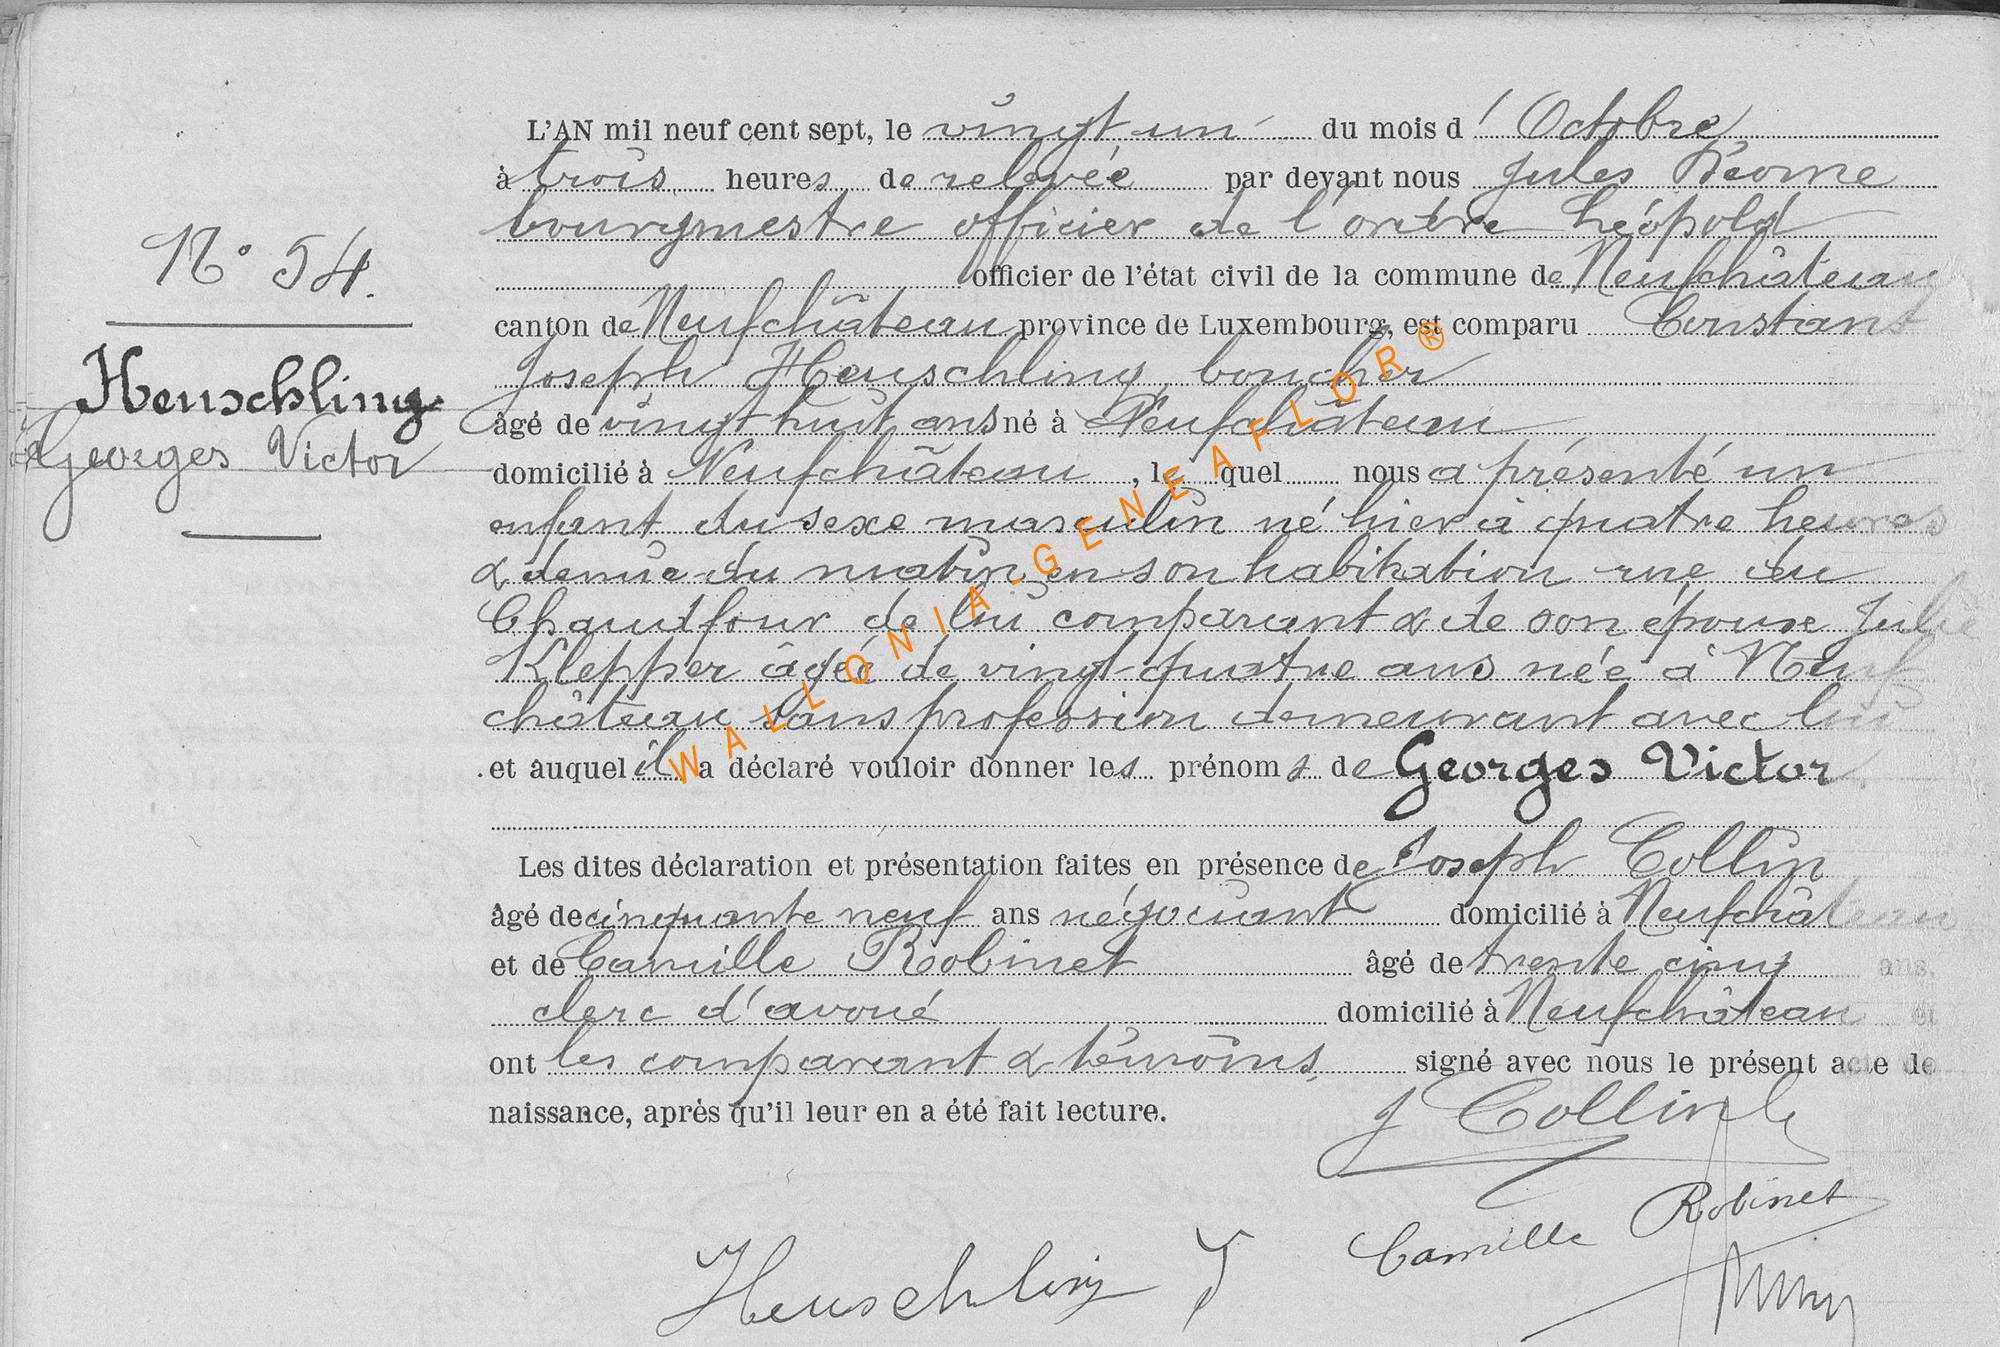 L'AN mil neuf cent sept, le vingt un du mois d'Octobre
à trois heures de relevée par devant nous Jules
bourgmestre officier de l'ordre Léopold
officier de l'état civil de la commune de Neufchâteau
canton de Neufchâteau province de Luxembourg, est comparu Constant
Joseph Heuschling boucher
âgé de vingt huit ans né à Neufchâteau
domicilié à Neufchâteau, lequel nous a présenté un
enfant du sexe masculin né hier à quatre heures
& demie du matin en son habitation rue du
Chaudfour de lui comparant & de son épouse Julie
Klepper âgée de vingt-quatre ans née à Neuf
château sans profession demeurant avec lui
et auquel il a déclaré vouloir donner les prénoms de Georges Victor
Les dites déclaration et présentation faites en présence de Joseph Collin
âgé de cinquante neuf ans négociant domicilié à Neufchâteau
et de Camille Robinet âgé de trente cinq ans.
clerc d'avoué domicilié à Neufchâteau et
ont les comparant & témoins signé avec nous le présent acte de
naissance, après qu'il leur en a été fait lecture.
N° 54.
Heuschling
Georges Victor
J Collin
Camille Robinet
Heuschling
WALLONIA-GENEAFLOR®